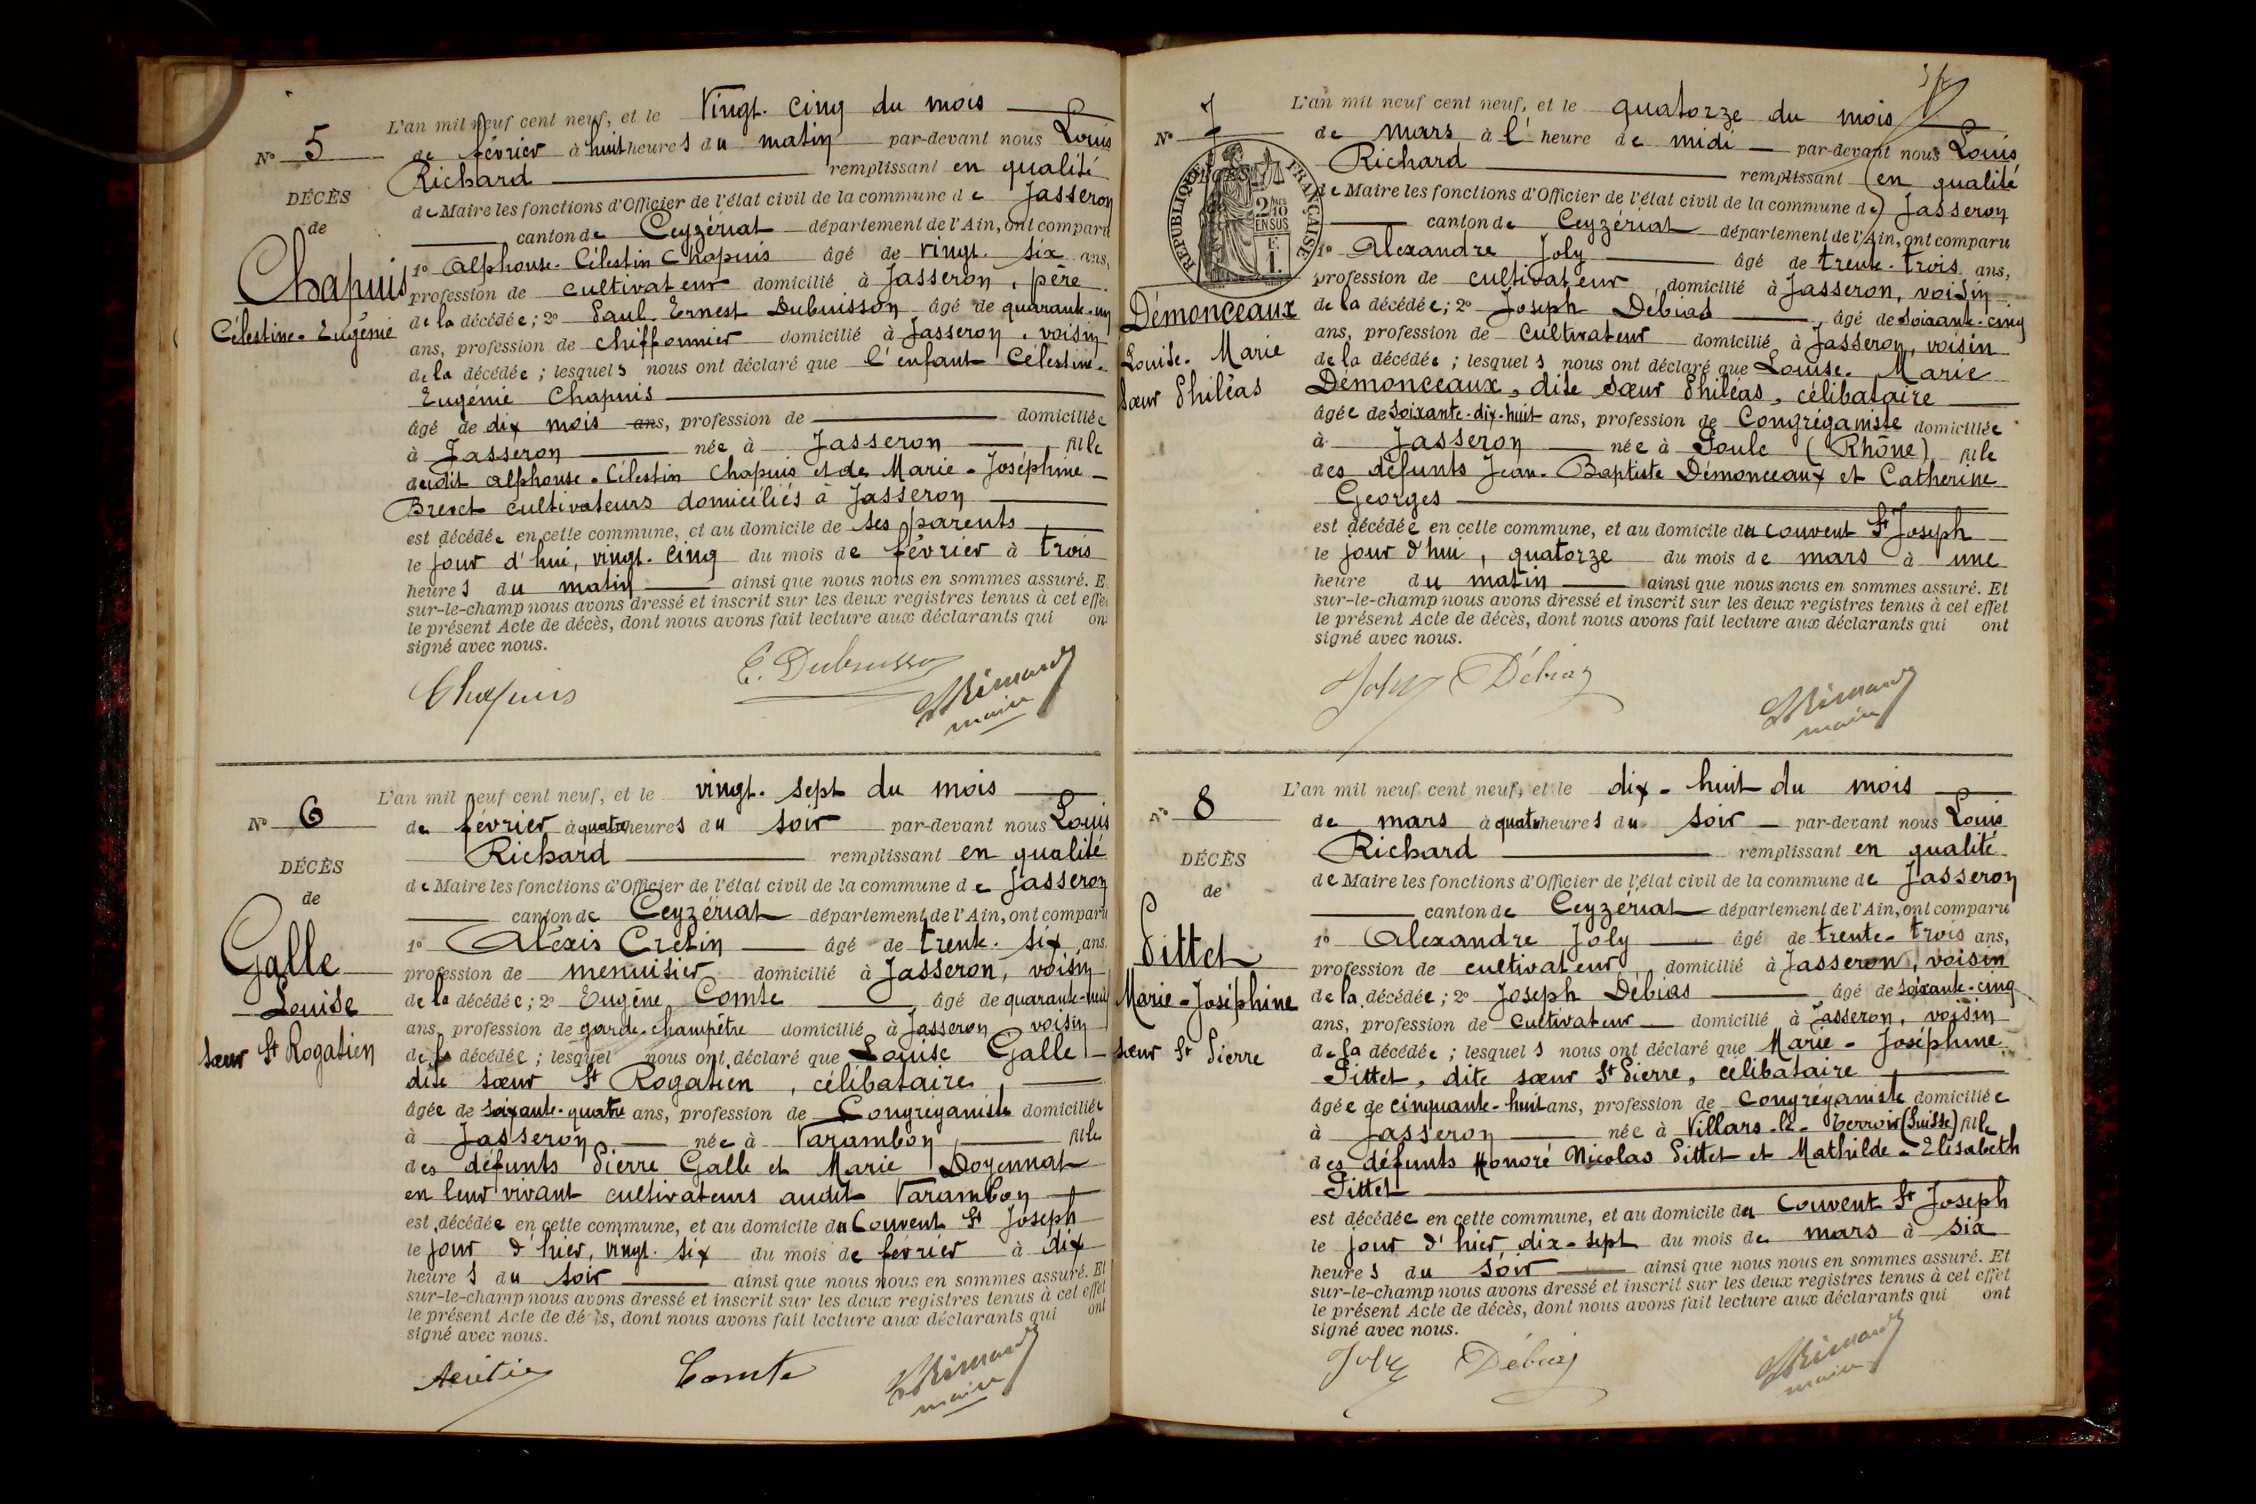 N° 5
DÉCÈS
de
Chapuis
Célestine-Eugénie
L'an mil neuf cent neuf, et le vingt-cinq du mois
de février à huit heures du matin par-devant nous Louis
Richard remplissant en qualité
de Maire les fonctions d'Officier de l'état civil de la commune de Jasseron
canton de Ceyzériat département de l'Ain, ont comparu
1° Alphonse-Célestin Chapuis âgé de vingt-six ans,
profession de cultivateur domicilié à Jasseron, père
de la décédée; 2° Paul-Ernest Dubuisson âgé de quarante-un
ans, profession de chiffonnier domicilié à Jasseron, voisin
de la décédée; lesquels nous ont déclaré que l'enfant Célestine-
Eugénie Chapuis
âgé de dix mois ans, profession de domiciliée
à Jasseron née à Jasseron, fille
dudit Alphonse-Célestin Chapuis et de Marie-Joséphine
cultivateurs domiciliés à Jasseron
est décédée en cette commune, et au domicile de ses parents
le jour d'hui, vingt-cinq du mois de février à trois
heures du matin ainsi que nous nous en sommes assuré. E
sur-le-champ nous avons dressé et inscrit sur les deux registres tenus à cet effet
le présent Acte de décès, dont nous avons fait lecture aux déclarants qui on
signé avec nous.
Chapuis E. Dubuisson
maire
N° 6
DÉCÈS
de
Galle
Louise
sœur St Rogatien
L'an mil neuf cent neuf, et le vingt-sept du mois
de février à quatre heures du soir par-devant nous Louis
Richard remplissant en qualité
de Maire les fonctions d'Officier de l'état civil de la commune de Jasseron
canton de Ceyzériat département de l'Ain, ont comparu
1° Alexis Cretin âgé de trente-six ans,
profession de menuisier domicilié à Jasseron, voisin
de la décédée; 2° Eugène Comte âgé de quarante-huit
ans, profession de garde-champêtre domicilié à Jasseron voisin
de la décédée; lesquel nous ont déclaré que Louise Galle
dite sœur St Rogatien, célibataire,
âgée de soixante-quatre ans, profession de Congréganiste domiciliée
à Jasseron née à Varambon, fille
des défunts Pierre Galle et Marie Doyennat
en leur vivant cultivateurs audit Varambon
est décédée en cette commune, et au domicile du Couvent St Joseph
le jour d'hier, vingt-six du mois de février à dix
heures du soir ainsi que nous nous en sommes assuré. Et
sur-le-champ nous avons dressé et inscrit sur les deux registres tenus à cet effet
le présent Acte de décès, dont nous avons fait lecture aux déclarants qui ont
signé avec nous.
Comte
maire
N° 7
RÉPUBLIQUE FRANÇAISE
2/10 EN SUS
F. 1.
Démonceaux
Louise-Marie
sœur Philéas
L'an mil neuf cent neuf, et le quatorze du mois
de mars à l'heure de midi par-devant nous Louis
Richard remplissant en qualité
de Maire les fonctions d'Officier de l'état civil de la commune de Jasseron
canton de Ceyzériat département de l'Ain, ont comparu
1° Alexandre Joly âgé de trente-trois ans,
profession de cultivateur, domicilié à Jasseron, voisin
de la décédée; 2° Joseph Débias, âgé de soixante-cinq
ans, profession de cultivateur domicilié à Jasseron, voisin
de la décédée; lesquels nous ont déclaré que Louise-Marie
Démonceaux, dite sœur Philéas, célibataire
âgée de soixante-dix-huit ans, profession de Congréganiste domiciliée
à Jasseron née à Poule (Rhône), fille
des défunts Jean-Baptiste Démonceaux et Catherine
Georges
est décédée en cette commune, et au domicile du couvent St Joseph
le jour d'hui, quatorze du mois de mars à une
heure du matin ainsi que nous nous en sommes assuré. Et
sur-le-champ nous avons dressé et inscrit sur les deux registres tenus à cet effet
le présent Acte de décès, dont nous avons fait lecture aux déclarants qui ont
signé avec nous.
Joly Débiaz
maire
N° 8
DÉCÈS
de
Pittet
Marie-Joséphine
sœur St Pierre
L'an mil neuf cent neuf, et le dix-huit du mois
de mars à quatre heures du soir par-devant nous Louis
Richard remplissant en qualité
de Maire les fonctions d'Officier de l'état civil de la commune de Jasseron
canton de Ceyzériat département de l'Ain, ont comparu
1° Alexandre Joly âgé de trente-trois ans,
profession de cultivateur, domicilié à Jasseron, voisin
de la décédée; 2° Joseph Débias âgé de soixante-cinq
ans, profession de cultivateur domicilié à Jasseron, voisin
de la décédée; lesquels nous ont déclaré que Marie-Joséphine
Pittet, dite sœur St Pierre, célibataire
âgée de cinquante-huit ans, profession de congréganiste domiciliée
à Jasseron née à Villars-le-Terroir (Suisse) fille
des défunts Honoré Nicolas Pittet et Mathilde-Elisabeth
Pittet
est décédée en cette commune, et au domicile du couvent St Joseph
le jour d'hier, dix-sept du mois de mars à six
heures du soir ainsi que nous nous en sommes assuré. Et
sur-le-champ nous avons dressé et inscrit sur les deux registres tenus à cet effet
le présent Acte de décès, dont nous avons fait lecture aux déclarants qui ont
signé avec nous.
Joly Débiaz
maire